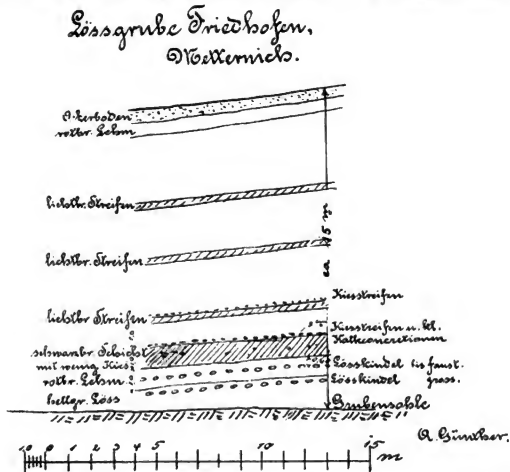 Lössgrube Friedhofen,
Metternich.
Ackerboden
rotbr. Lehm
lichtbr. Streifen
lichtbr. Streifen
lichtbr. Streifen
schwarzbr. Schicht
mit wenig Kies
rotbr. Lehm
hellgr. Löss
ca 15 m
Kiesstreifen
Kiesstreifen u. kl.
Kalkconcretionen
Lösskindel bis faust-
Lösskindel gross.
Grubensohle
1,0 0 1 2 3 4 5 10 15
m
A. Günther.